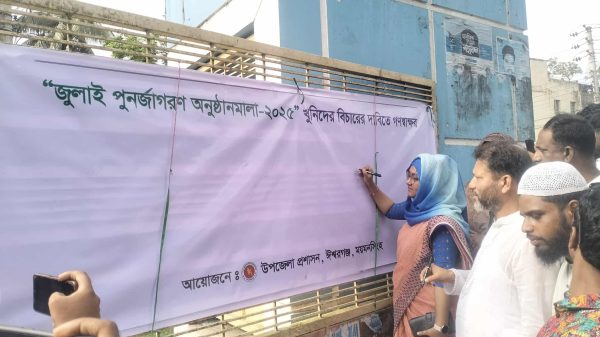 “জুলাই পুনর্জাগরণ অনুষ্ঠানমালা-২০২৫” খুনিদের বিচারের দাবিতে গণস্বাক্ষর
আয়োজনে ঃ উপজেলা প্রশাসন, ঈশ্বরগঞ্জ, ময়মনসিংহ